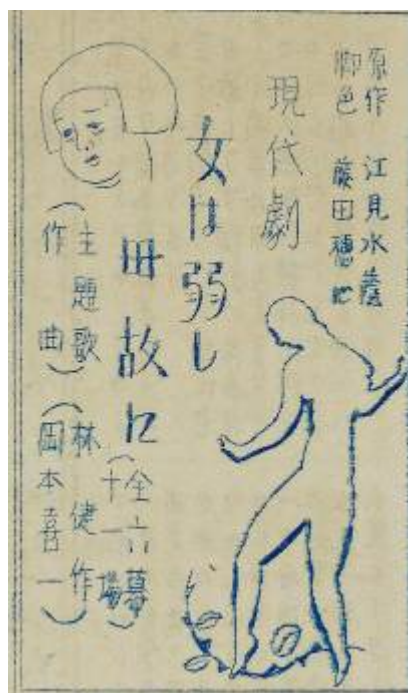 原作 江見水蔭
脚色 藤田
現代劇
女は弱し
母故に
(全六幕
十一場)
(主題歌 (林 健作
作 曲) 岡本喜一)